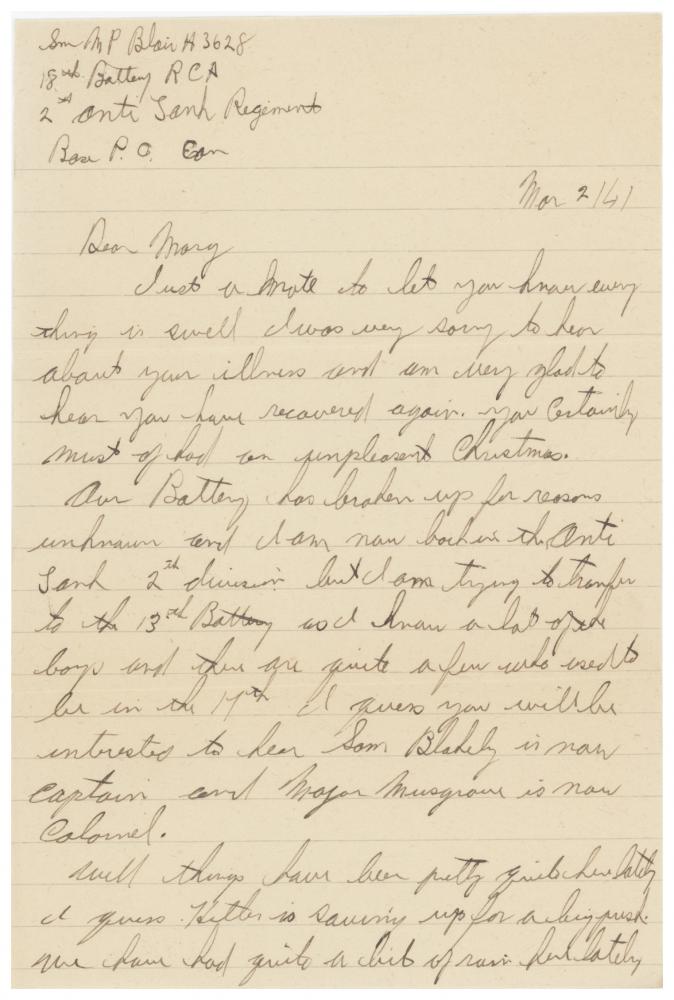 Gnr M P Blair H 3628
18th Battery RCA
2nd Anti Tank Regiment
Base P. O. Can
Mar 2/41
Dear Mary
Just a note to let you know every
thing is swell I was very sorry to hear
about your illness and am very glad to
hear you have recovered again. you Certainly
must of had an unpleasent Christmas.
Our Battery has broken up for reasons
unknown and I am now back in the Anti
Tank 2th division but I am trying to tranfer
to the 13th Battery as I know a lot of the
boys and there are quite a few who used to
be in the 17th I guess you will be
interested to hear Sam Blakely is now
Captain and Major Musgrave is now
Colornel.
Well things have been pretty quite here lately
I guess Hitler is saving up for a big push.
We have had quite a bit of rain here lately